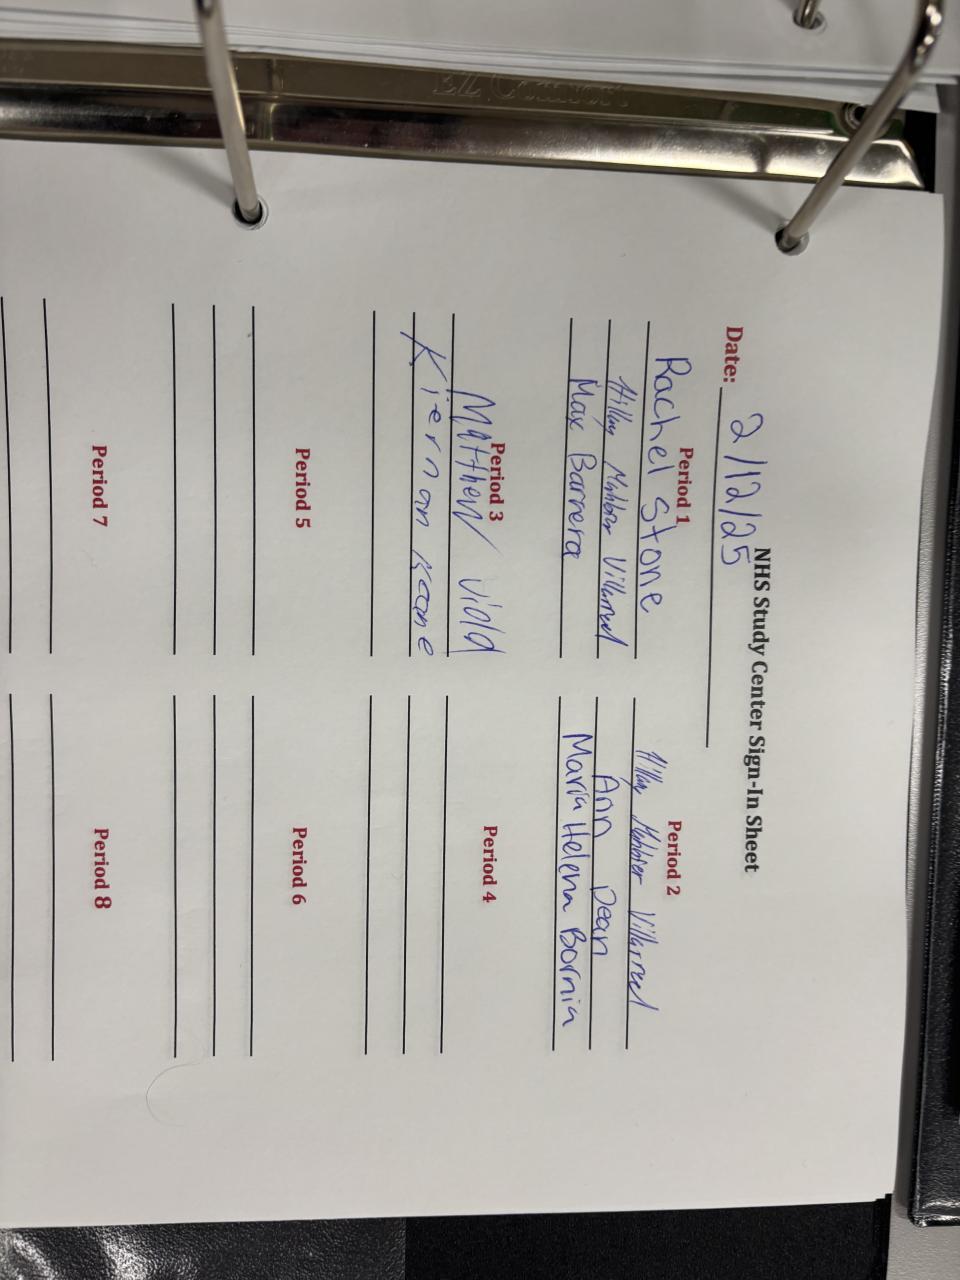 EZ Comfort
NHS Study Center Sign-In Sheet
Date: 2/12/25
Period 1
Rachel Stone
Villarreal
Max Barrera
Period 2
Villarreal
Ann Dean
Maria Helena Bornia
Period 3
Matthew Viola
Kiernan Keane
Period 4
Period 5
Period 6
Period 7
Period 8